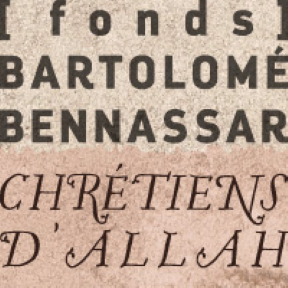 [fonds]
BARTOLOMÉ
BENNASSAR
CHRÉTIENS
D'ALLAH